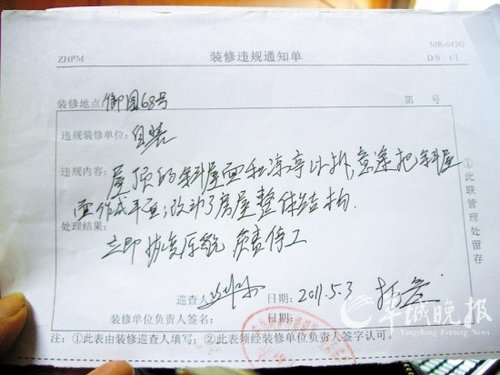 ZHPM
装修违规通知单
D/0 1/1
装修地点：御园68号
第 号
违规装修单位：自装
违规内容：屋顶的斜屋面和凉亭以拆，意途把斜屋
面作成平面，改动了房屋整体结构。
处理结果：
立即恢复原貌 责停工
①此联管理处留存
巡查人
日期：2011.5.3
装修单位负责人签名：
日期：
注：①此表由装修巡查人填写；②此表须经装修单位负责人签字认可。
羊城晚报
Yangcheng Evening News